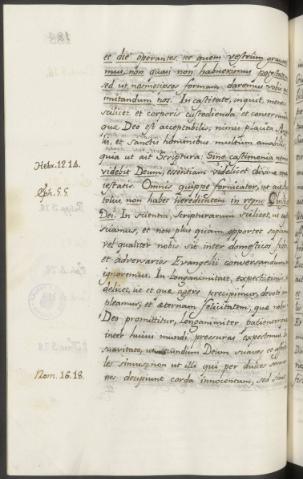 et die operantes, ne quem vestrûm grava-
mus, non quasi non habuerimus potestatem
sed ut nosmetipsos formam daremus vobis ad
imitandum nos. In castitate, inquit, mentis
scilicet et corporis custodienda, et conservan
quæ Deo est acceptabilis, nimis
et sanctis hominibus multum amabilis
quia ut ait Scriptura: Sine castimonia nemo
Hebr. 12. 14.
videbit Deum, essentiam videlicet divinæ ma-
iestatis. Omnis quippe fornicator, ut aut
Eph. 5. 5.
non habet hereditatem in regno
Dei. In scientia Scripturarum scilicet, ut
suamus, et non plus quam oportet sapiam
vel qualiter nobis sit inter domesticos fidei
et adversarios Evangelii conversandum
ignoremus. In longanimitate, expectationis
delicet, ut et quæ agere præcipimur, devote
pleamus, et æternam felicitatem, quæ nobis
Deo promittitur, longanimiter, patienterque
inter huius mundi pressuras expectemus. In
suavitate, ut secundum Deum suaves et affabi-
les simus, non ut illi qui per dulces sermo-
Rom. 16. 18.
nes decipiunt corda innocentum, sed